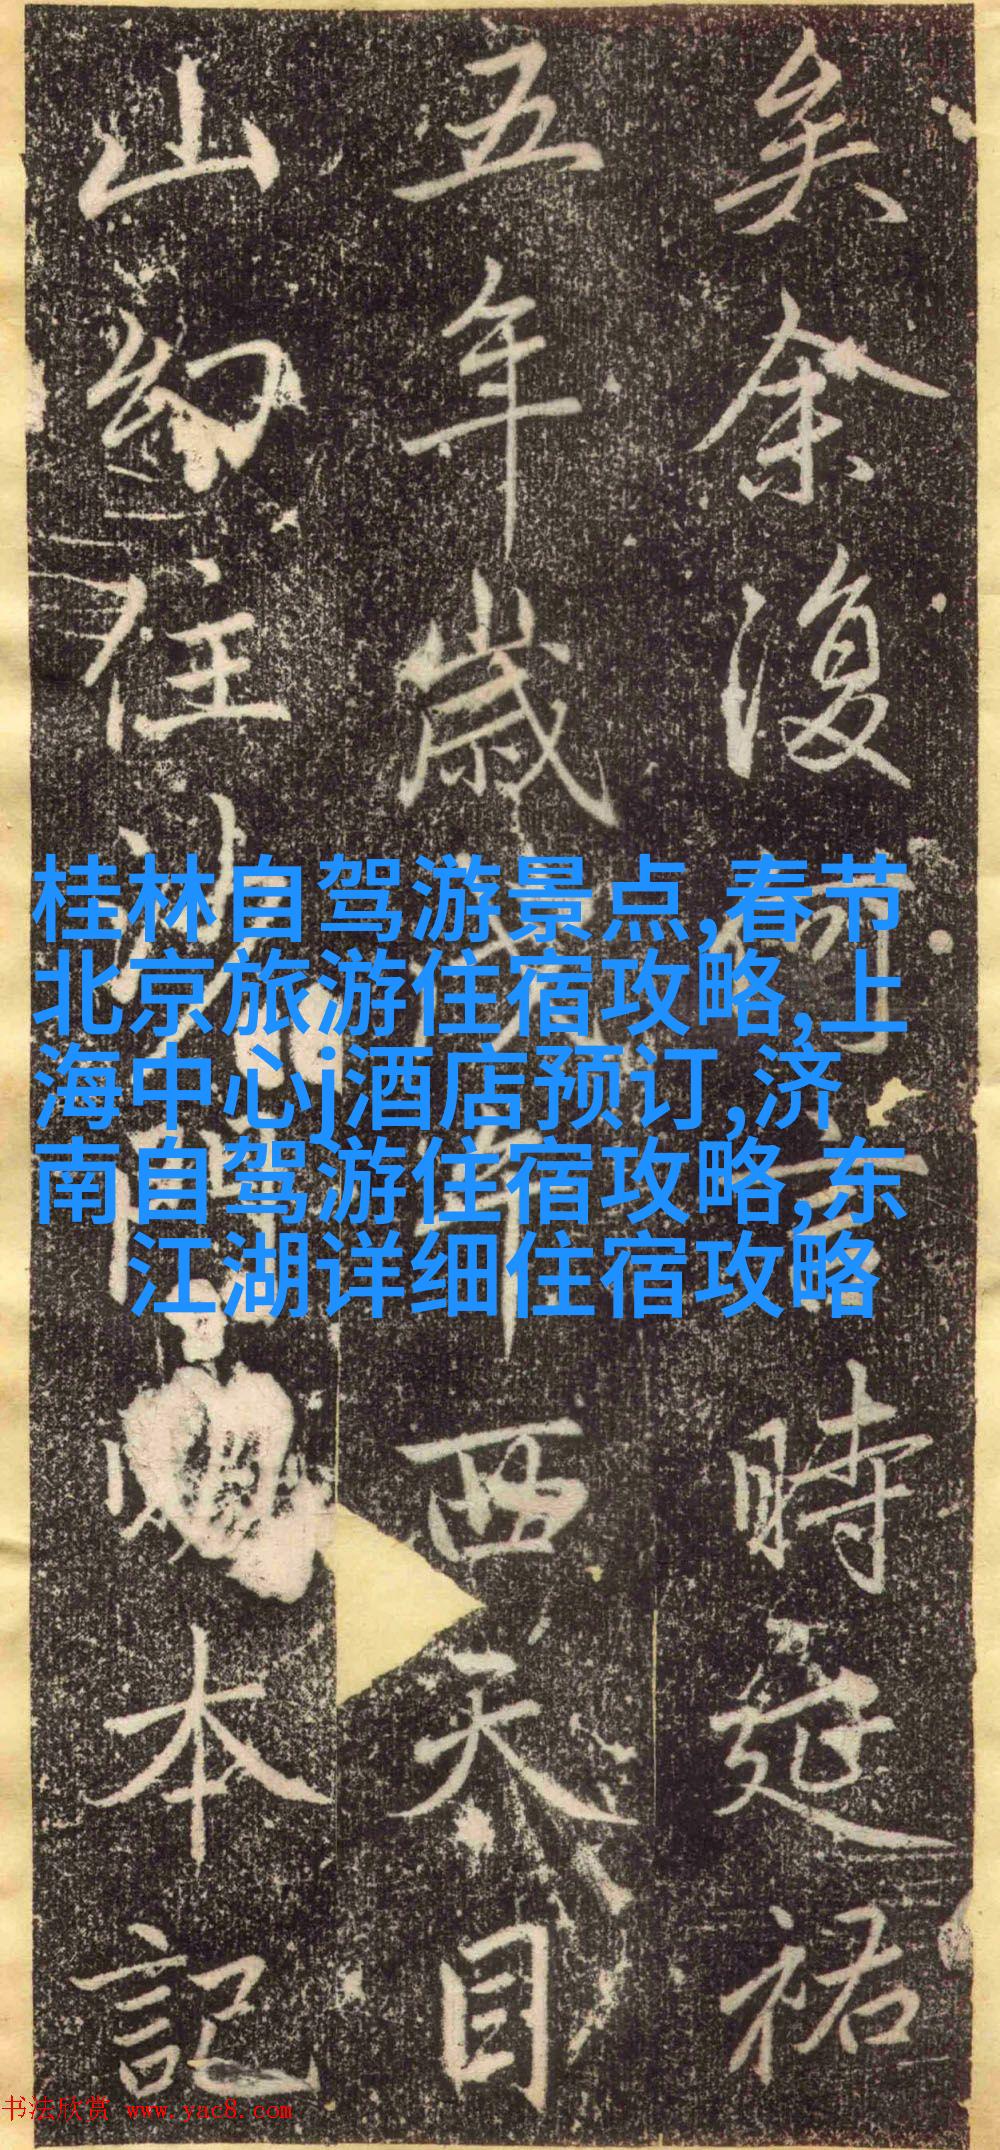 矣余復何言時延祐
五年歲戊午西天目
山幻住沙門明本記
桂林自驾游景点,春节
北京旅游住宿攻略,上
海中心j酒店预订,济
南自驾游住宿攻略,东
江湖详细住宿攻略
书法欣赏 www.yac8.com